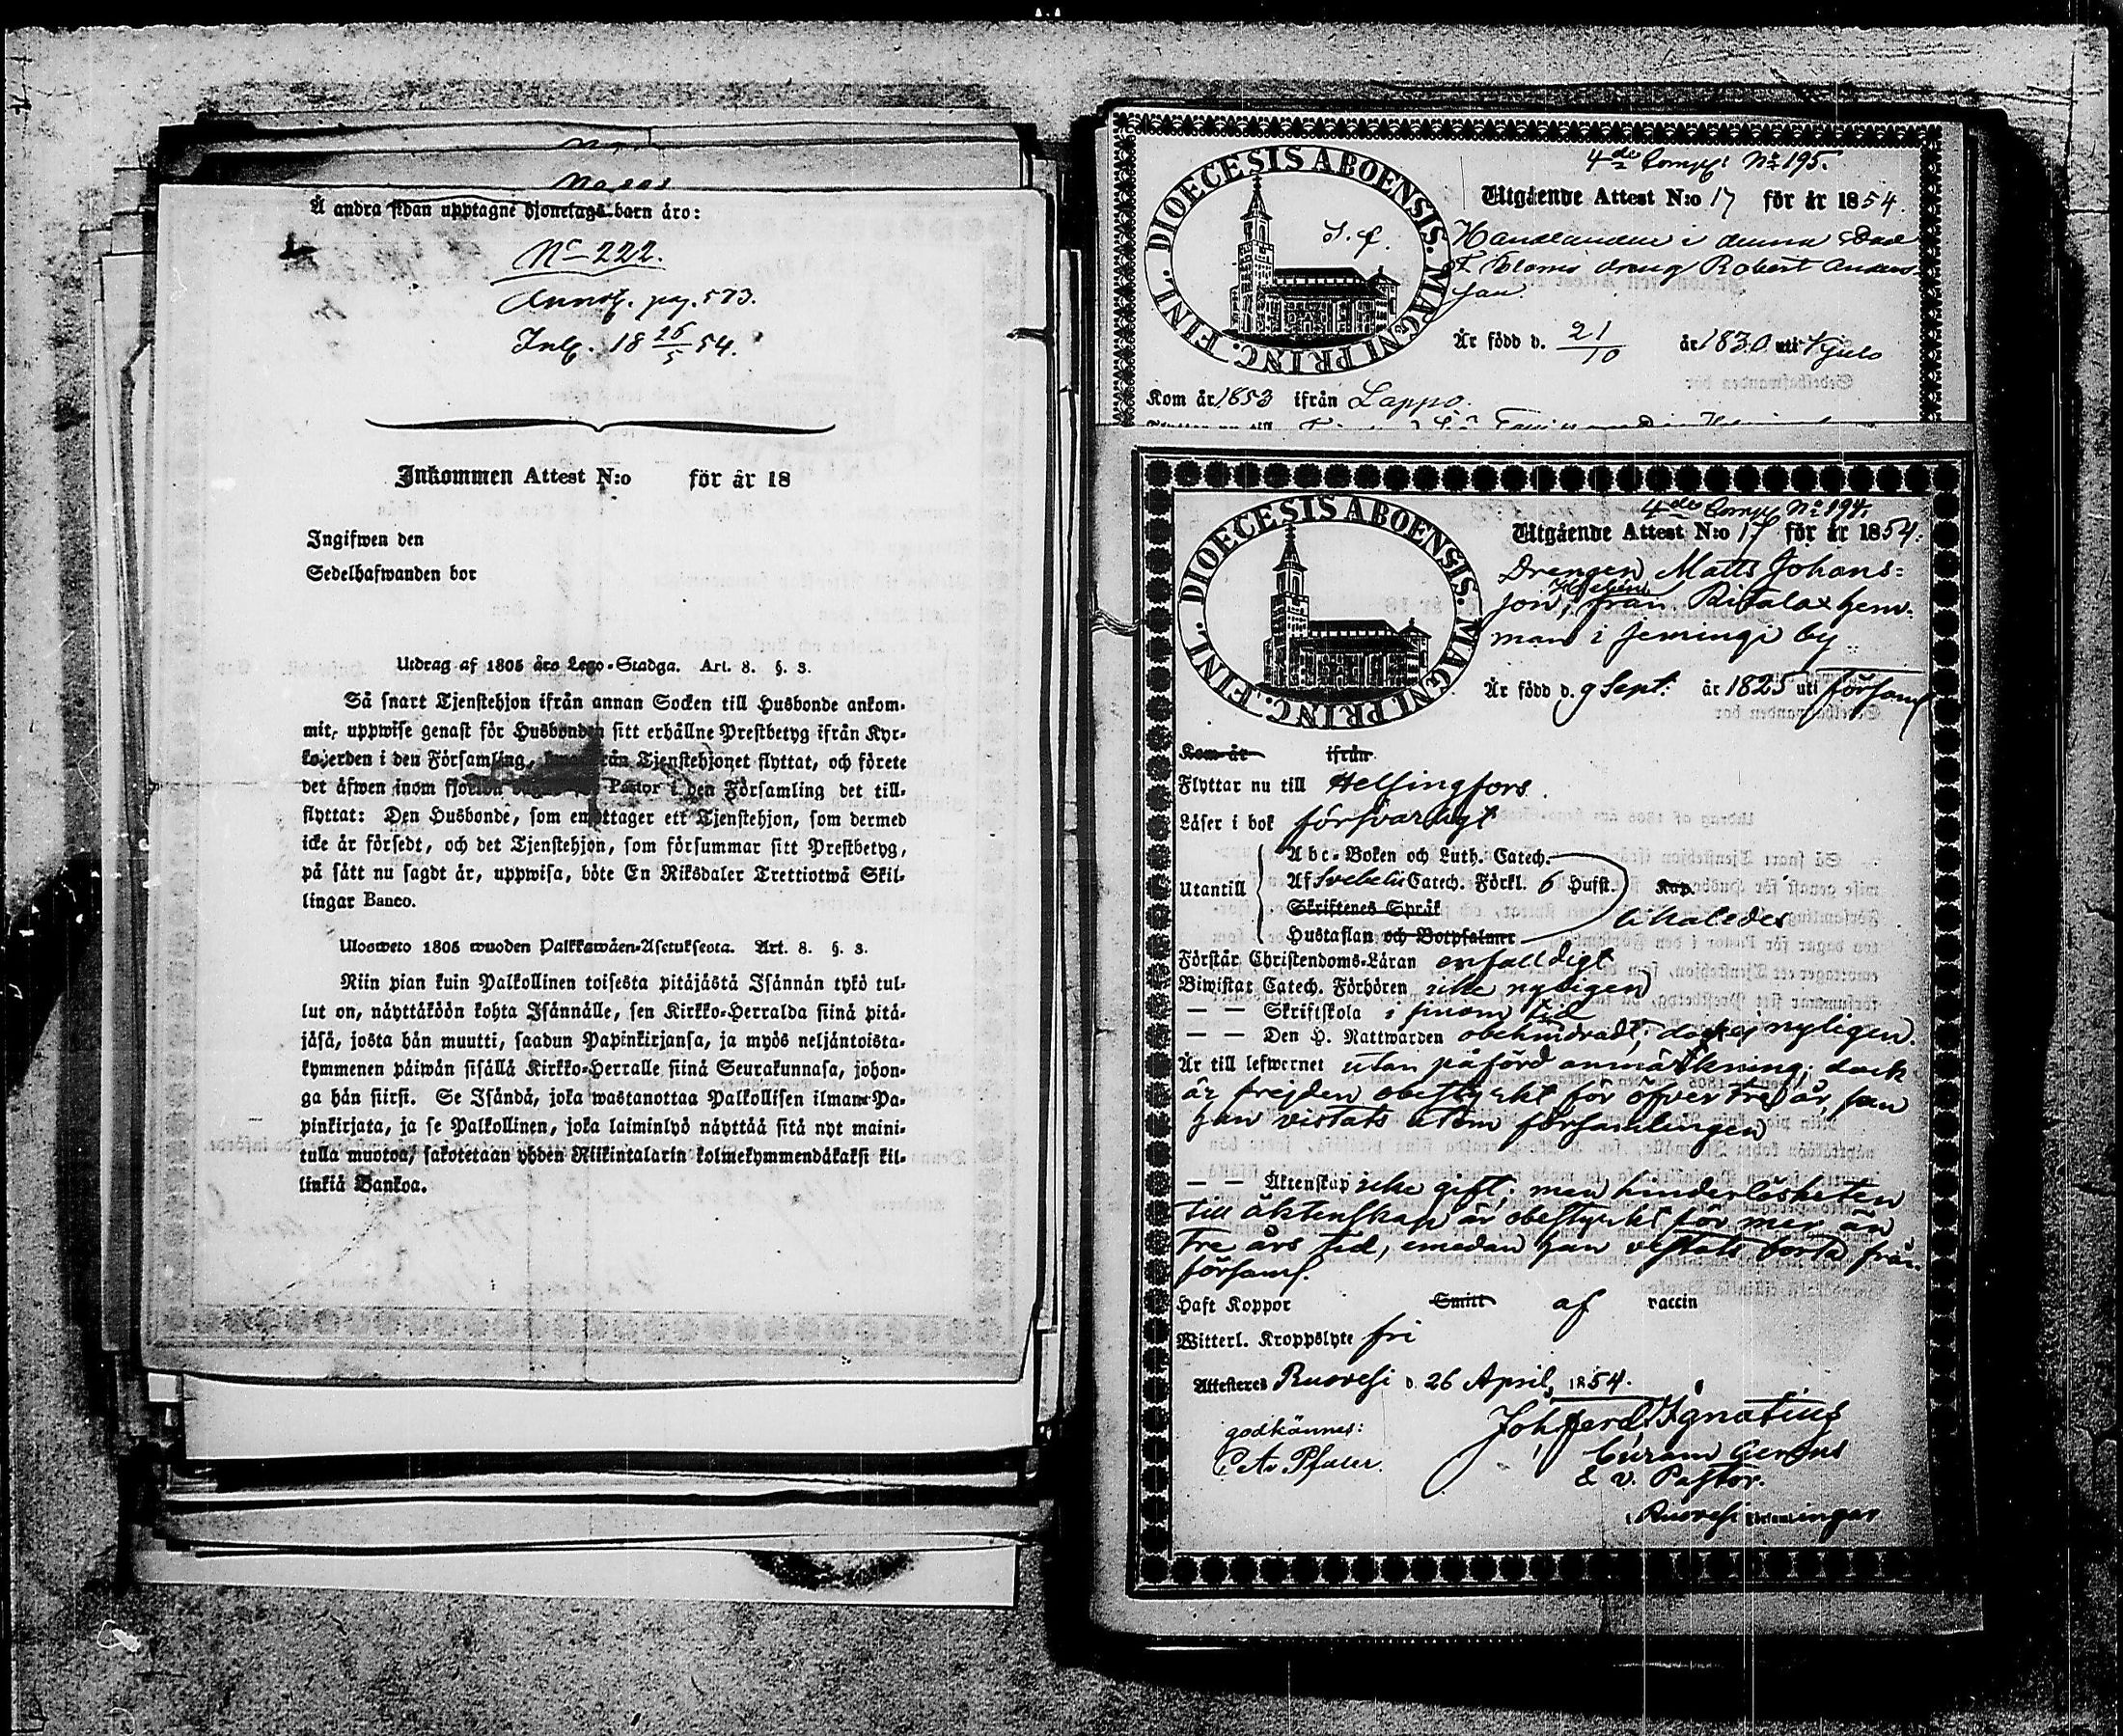 Å andra sidan upptagne hjonelags-barn äro:
No 222.
Annot. pag. 573.
Inl. 18 26/5 54.
Inkommen Attest N:o för år 18
Ingifwen den
Sedelhafwanden bor
Utdrag af 1805 års Lego-Stadga. Art. 8. §. 3.
Så snart Tjenstehjon ifrån annan Socken till Husbonde ankom-
mit, uppwise genast för Husbonden sitt erhållne Prestbetyg ifrån Kyr-
koherden i den Församling, Tjenstehjonet flyttat, och förete
det äfwen inom fjorton Pastor i den Församling det till-
flyttat: Den Husbonde, som emottager ett Tjenstehjon, som dermed
icke är försedt, och det Tjenstehjon, som försummar sitt Prestbetyg,
på sätt nu sagdt är, uppwisa, böte En Riksdaler Trettiotwå Skil-
lingar Banco.
Ulosweto 1805 wuoden Palkkawäen-Asetuksesta. Art. 8. §. 3.
Niin pian kuin Palkollinen toisesta pitäjästä Isännän tykö tul-
lut on, näyttäköön kohta Isännälle, sen Kirkko-Herralda siinä pitä-
jäsä, josta hän muutti, saadun Papinkirjansa, ja myös neljäntoista-
kymmenen päiwän sisällä Kirkko-Herralle siinä Seurakunnasa, johon-
ga hän siirsi. Se Isändä, joka wastanottaa Palkollisen ilman Pa-
pinkirjata, ja se Palkollinen, joka laiminlyö näyttää sitä nyt maini-
tulla muotoa, sakotetaan yhden Riikintalarin kolmekymmendäkaksi kil-
linkiä Bankoa.
DIOECESIS ABOENSIS. MAGNI PRINC. FINL.
4de Comp: No 195.
Utgående Attest N:o 17 för år 1854.
Handlanden i denna Stad
dräng Robert Anders-
son.
Är född d. 21/10 år 1830 uti Kjulo
Kom år 1853 ifrån Lappo.
DIOECESIS ABOENSIS. MAGNI PRINC. FINL.
4de Comp No 194.
Utgående Attest N:o 17 för år 1854.
Drengen Matts Johans-
son, från Ritalax hem-
man i Jemingi by
Är född d. 9 Sept: år 1825 uti församl
Kom år ifrån
Flyttar nu till Helsingfors.
Läser i bok försvarligt
Utantill
Abc-Boken och Luth. Catech.
Af Svebelii Catech. Förkl. 6 Hufst. Kap.
Skriftenes Språk
likaledes
Hustaflan och Botpsalmer
Förstår Christendoms-Läran enfalldigt
Biwistat Catech. Förhören icke nyligen
— — Skriftskola i sinom tid
— — Den H. Nattwarden obehindradt; dock ej nyligen.
Är till lefwernet utan påförd anmärkning; dock
är frejden obestyrkt för öfver tre år, som
han vistats utom församlingen
— — Äktenskap icke gift; men hinderlösheten
till äktenskap är obestyrkt för mer än
tre års tid, emedan han vistats borta från
församl.
Haft Koppor Smitt af vaccin
Witterl. Kroppslyte fri
Attesteres Ruovesi d. 26 April, 1854.
godkännes:
Joh. Ferd. Ignatius
Curam Gerens
& v. Pastor.
i Ruovesi församlingar